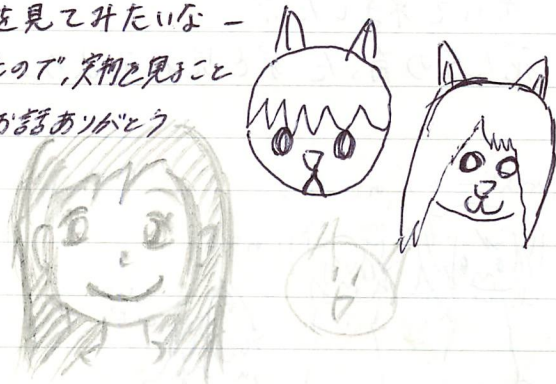 を見てみたいなー
ので,実物を見ること
お話ありがとう